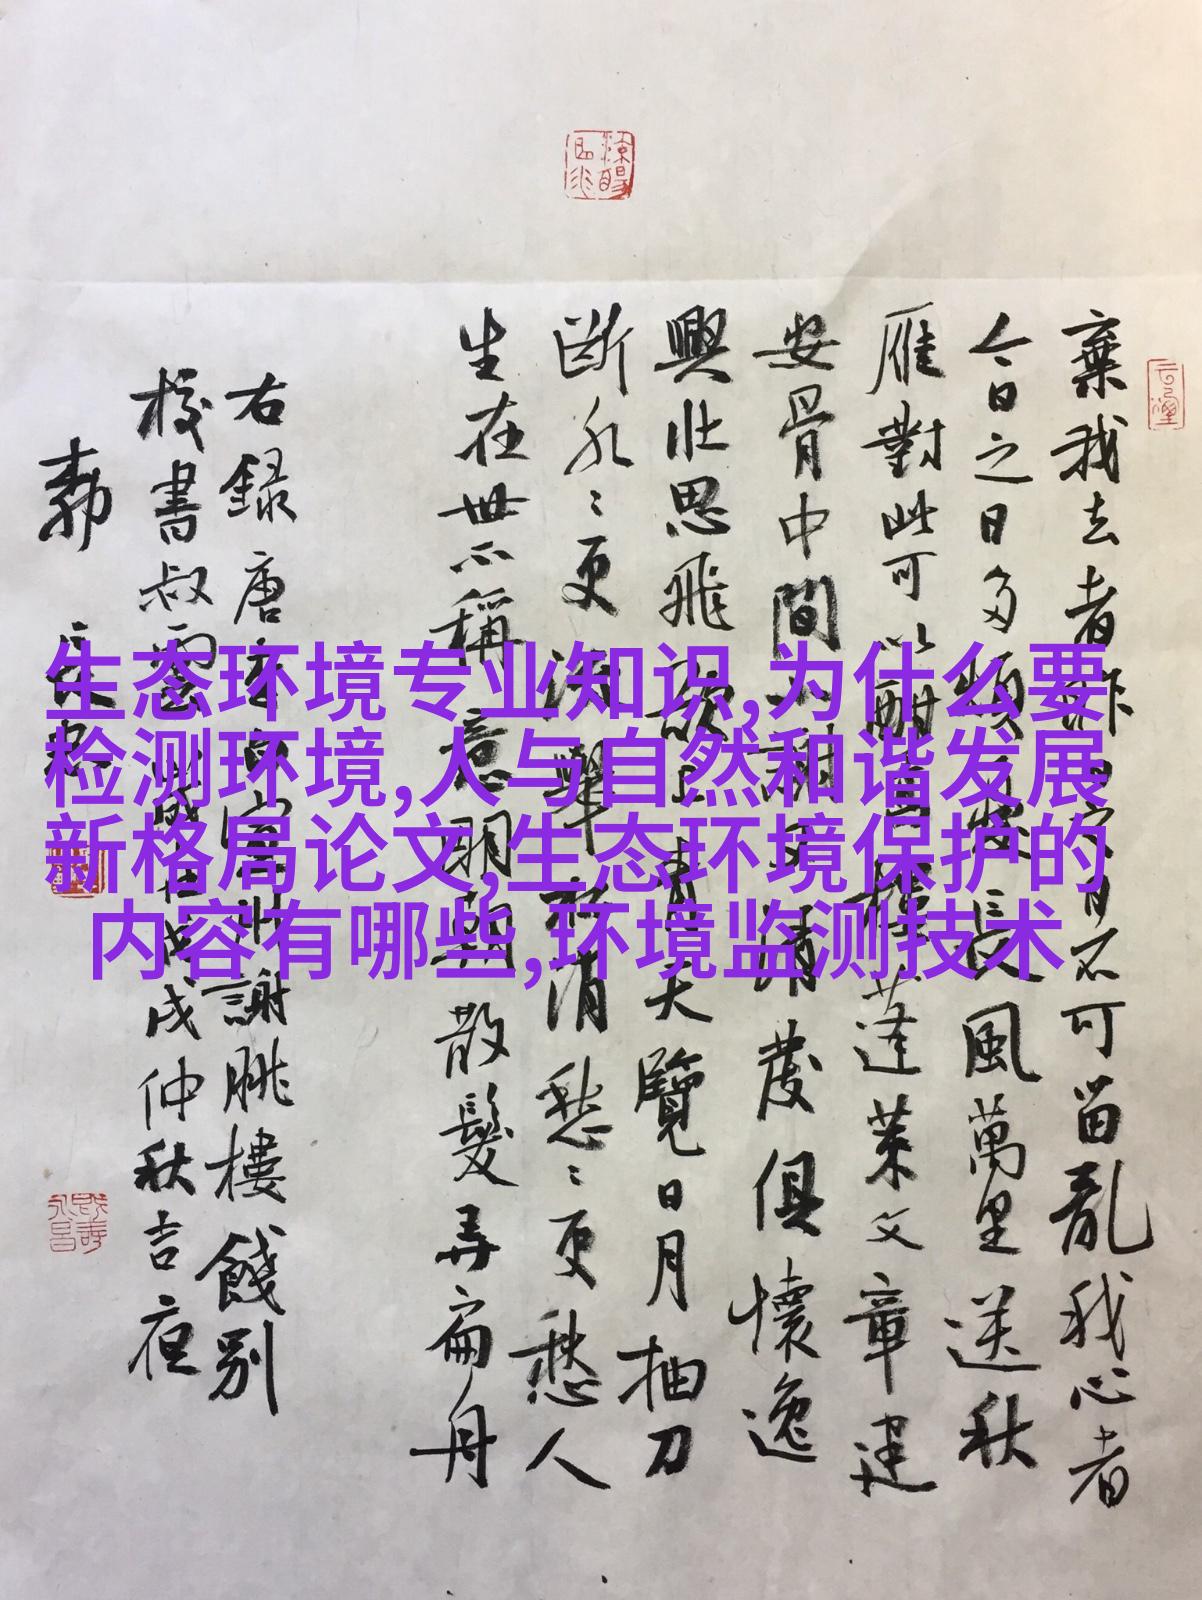 生态环境专业知识,为什么要
检测环境,人与自然和谐发展
新格局论文,生态环境保护的
内容有哪些,环境监测技术
棄我去者昨日之日不可留亂我心者
今日之日多煩憂長風萬里送秋
雁對此可以酣高樓蓬萊文章建
安骨中間小謝又清發俱懷逸
興壯思飛欲上青天覽日月抽刀
斷水〻更流舉杯消愁〻更愁人
生在世不稱意明朝散髮弄扁舟
右録唐李白宣州謝朓樓餞別
校書叔雲歲戊戌仲秋吉夜